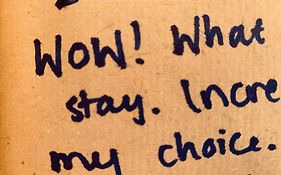 WOW! What
stay. Incre
my choice.